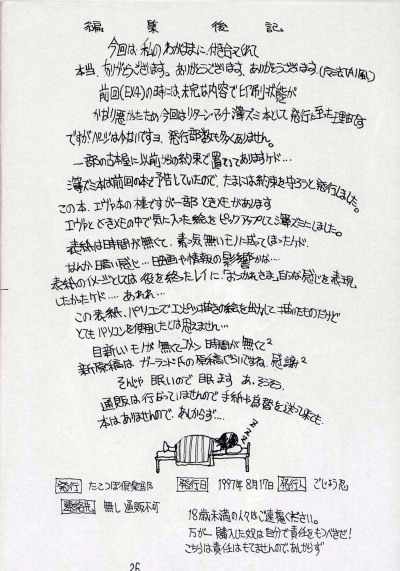 編集後記
今回は私のわがままに付き合ってくれて
本当、ありがとうございます。ありがとうございます、ありがとうございます
前回(EX4)の時には、未完な内容で印刷状態が
かなり悪かったため・今回はリターンマッチ 薄ズミ本として、発行に至った理由です
ですがページは少ないですヨ、発行部数も多くありません。
一部の古本屋に以前からの約束で置いてありますケド…
薄ズミ本は前回の本で予告していたので、たまには約束を守ろうと発行しました。
この本、エヴァ本の様ですが一部ときメモがあります
エヴァとときメモの中で気に入った絵をピックアップして薄ズミにしました。
表紙は時間が無くて、素っ気無いモノに成ってしまったケド、
なんか暗い感じ…映画や情報の影響かな…
表紙のイメージとしては役を終ったレイに「おつかれさま」的な感じを表現
したかったケド… あれれ…
この表紙、パソコンでエンピツ描きの絵を出力して描いたものだけど
とてもパソコンを使用したとは思えません…
目新しいモノが無くてゴメン 時間が無くて2
新原稿はガーランド氏の原稿ぐらいですね 感謝2
そんじゃ 眠いので 眠ます あ、そうそう、
通販は行なっていませんので手紙や為替を送って来ても
本はありませんので、あしからず…
ZZZZ
発行 たこつぼ倶楽部 発行日 1997年8月17日 発行人 ごじょう忍
連絡先 無し 通販不可
18歳未満の人々はご遠慮ください。
万が一購入した奴は自分で責任をもつべきだ!
こちらは責任はもてませんので、あしからず
26